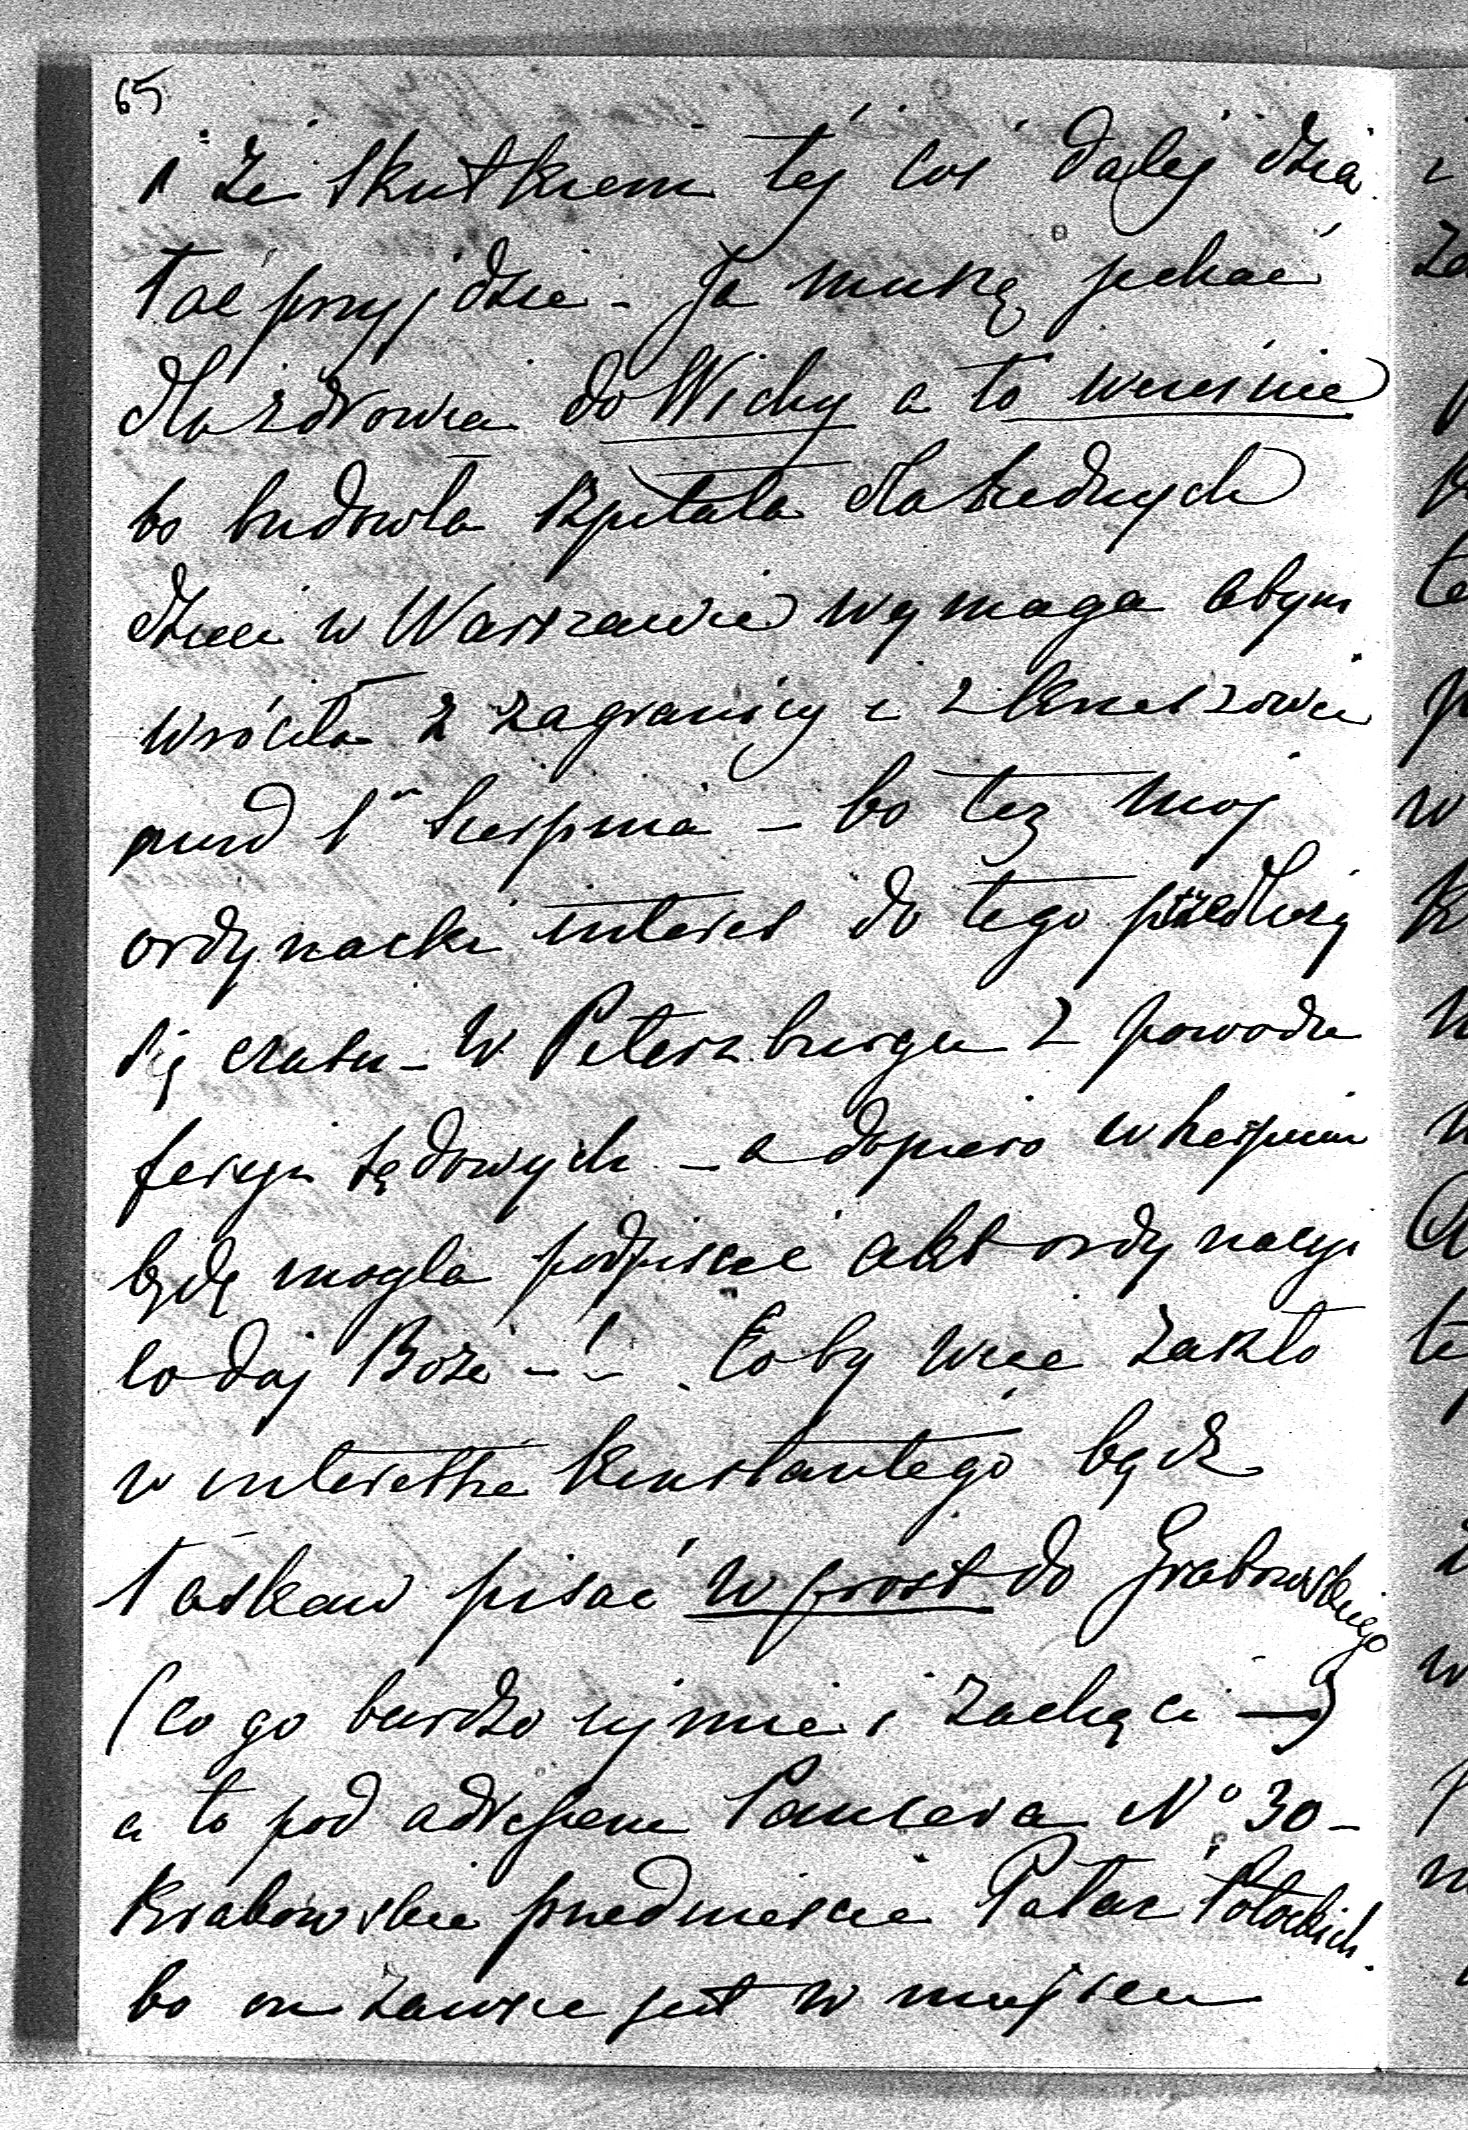 65
i że skutkiem téj coś daléj dzia
łać przyjdzie - Ja muszę jechać
dla zdrowia do Wichy a to wcześnie
bo budowla szpitala dla biednych
dzieci w Warszawie wymaga abym
wróciła z zagranicy i z Krzeszowic
przed 1m Sierpnia - bo też mój
ordynacki interes do tego przedłuży
się czasu - w Peterzburgu z powodu
feryi sądowych - a dopiero w sierpniu
będę mogła podpisać akt ordynacyi
co daj Boże - ! - Coby więc zaszło
w interessie Konstantego bądź
łaskaw pisać wprost do Grabowskiego
(co go bardzo ujmie i zachęci —)
a to pod adressem Pancera No 30 -
Krakowskie przedmieście Pałac Potockich.
bo on zawsze jest w miejscu